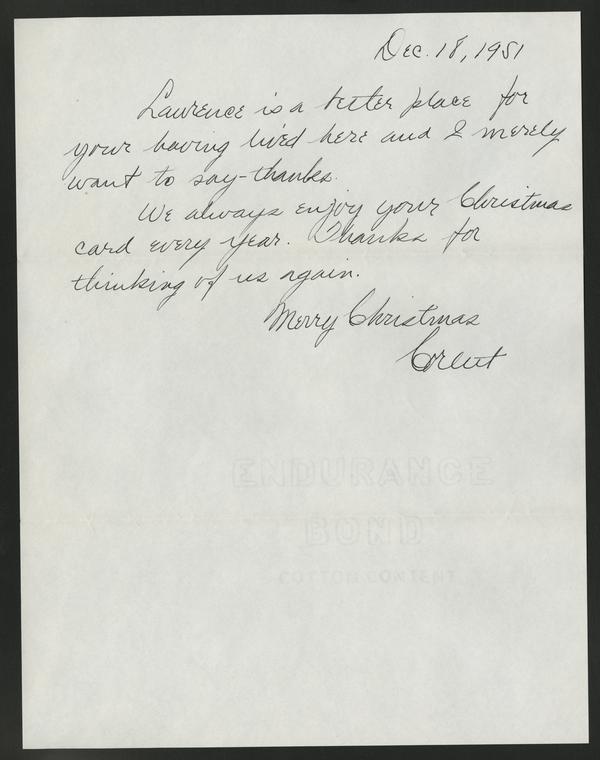 Dec. 18, 1951
Laurence is a better place for
your having lived here and I merely
want to say-thanks.
We always enjoy your Christmas
card every year. Thanks for
thinking of us again.
Merry Christmas
ENDURANCE
BOND
COTTON CONTENT